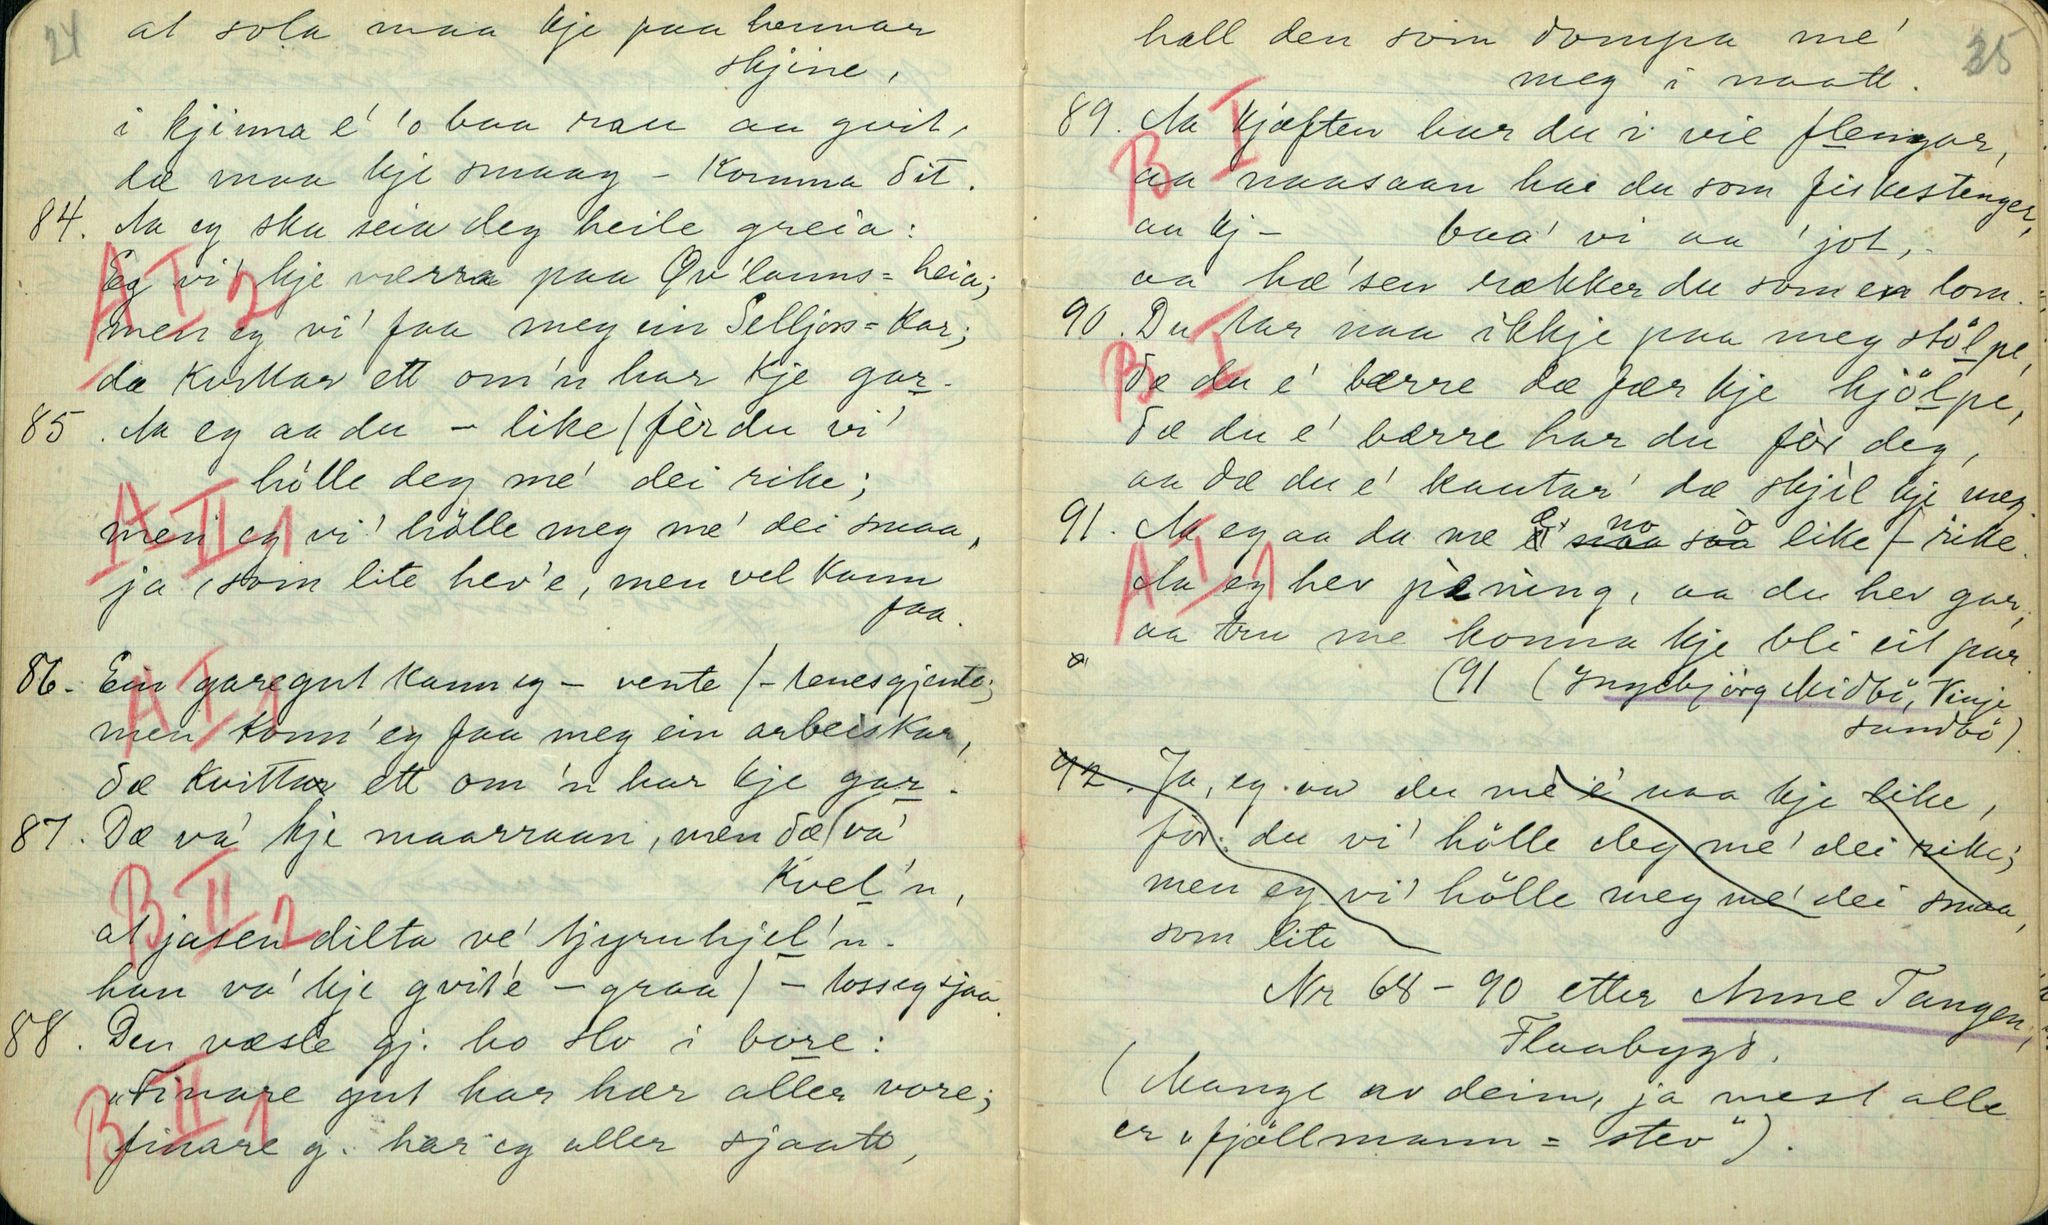 24
at sola maa kje paa hennar
skjine,
i kjinna é 'o baa rau aa gvit,
dæ maa kje smaag – komma dit.
84. Aa eg ska seia deg heile greia:
A I 2
Eg vi' kje værra paa Qv'lanns=heia;
men eg vi' faa meg ein Selljors=kar;
dæ kvittar ett om'n har kje gar.
85. Aa eg aa du – like / fèr du vi'
hölle deg me' dei rike;
A II 1
men eg vi' hölle meg me' dei smaa,
ja, som lite hev'e, men vel kann
faa.
86. Ein garegut kann eg – vente / – tenesgjente;
A I 1
men konn' eg faa meg ein arbeiskar,
dæ kvittar ett om 'n har kje gar.
87. Dæ va' kje maarraan, men dæ va'
kvel'n,
B II 2
at jasen dilta ve' tjyruhjel'n.
han va' kje gvit'e – graa / – tosseg sjaa.
88. Den væsle gj. ho slo i bore:
B II 1
"Finare gut har hær aller vore;
finare g. har eg aller sjaatt,
25
hall den som dompa me'
meg i naatt.
89. Aa kjæften har du i vie flengar,
B I
aa naasaan har du som fiskestenger,
aa kj – baa' vi aa 'jot,
aa hæ'sen rækker du som en lom.
90. Du tar naa ikkje paa meg stölpe,
B I
dæ du e' bærre dæ fær kje hjölpe,
dæ du e' bærre har du fèr deg,
aa dæ du e' kantar' dæ skjil kje meg.
91. Aa eg aa du me e' no so like / – rike.
A I 1
Aa eg hev pening, aa du hev gar,
aa tru me konna kje bli eit par.
(91 (Ingebjörg Midbö, Vinje
sundbö).
92. Ja, eg aa du me e' naa kje like,
fèr du vi' hölle deg me' dei rike;
men eg vi' hölle meg me' dei smaa,
som lite
Nr 68 – 90 etter Anne Tangen,
Flaabygd.
(Mange av deim, ja mest alle
er "fjöllmann = stev").